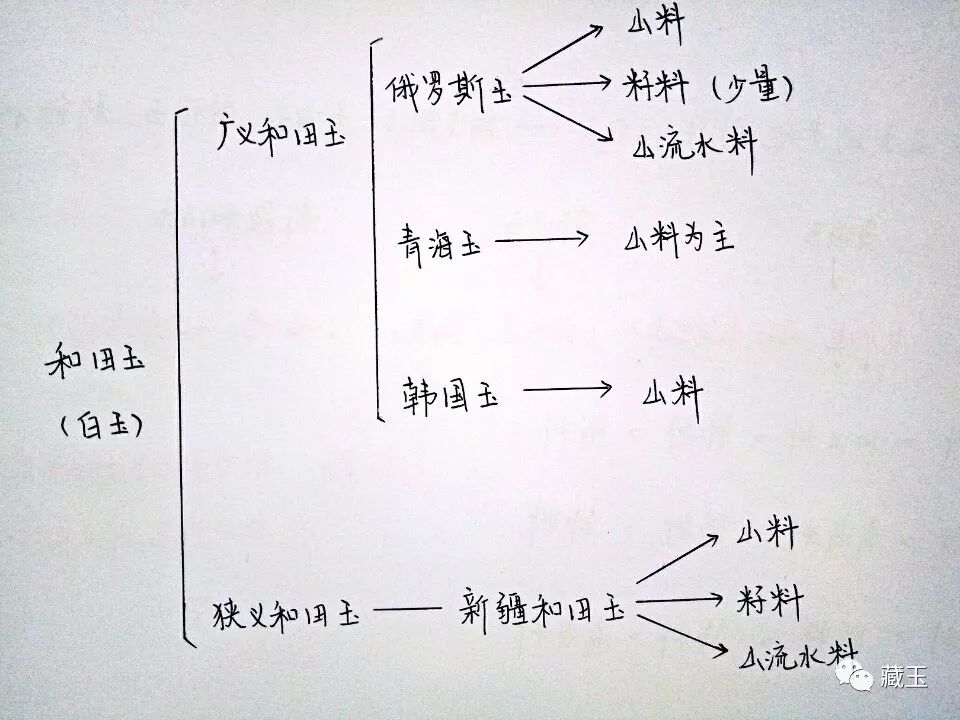 山料
俄罗斯玉
籽料（少量）
山流水料
广义和田玉
青海玉
山料为主
和田玉
（白玉）
韩国玉
山料
狭义和田玉
新疆和田玉
山料
籽料
山流水料
藏玉